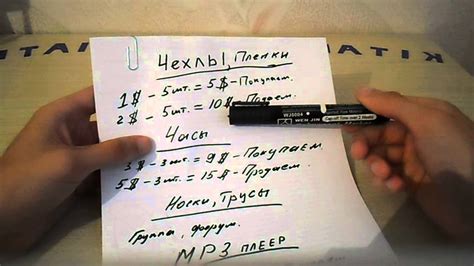 Чехлы, Пленки
1$ - 5шт. = 5$ - Покупаем.
2$ - 5шт. = 10$ - Продаем.
Часы
3$ - 3шт. = 9$ - Покупаем
5$ - 3шт. = 15$ - Продаем.
Носки, Трусы
Группа, форум.
MP3 плеер
WJ0004
WEN JIN